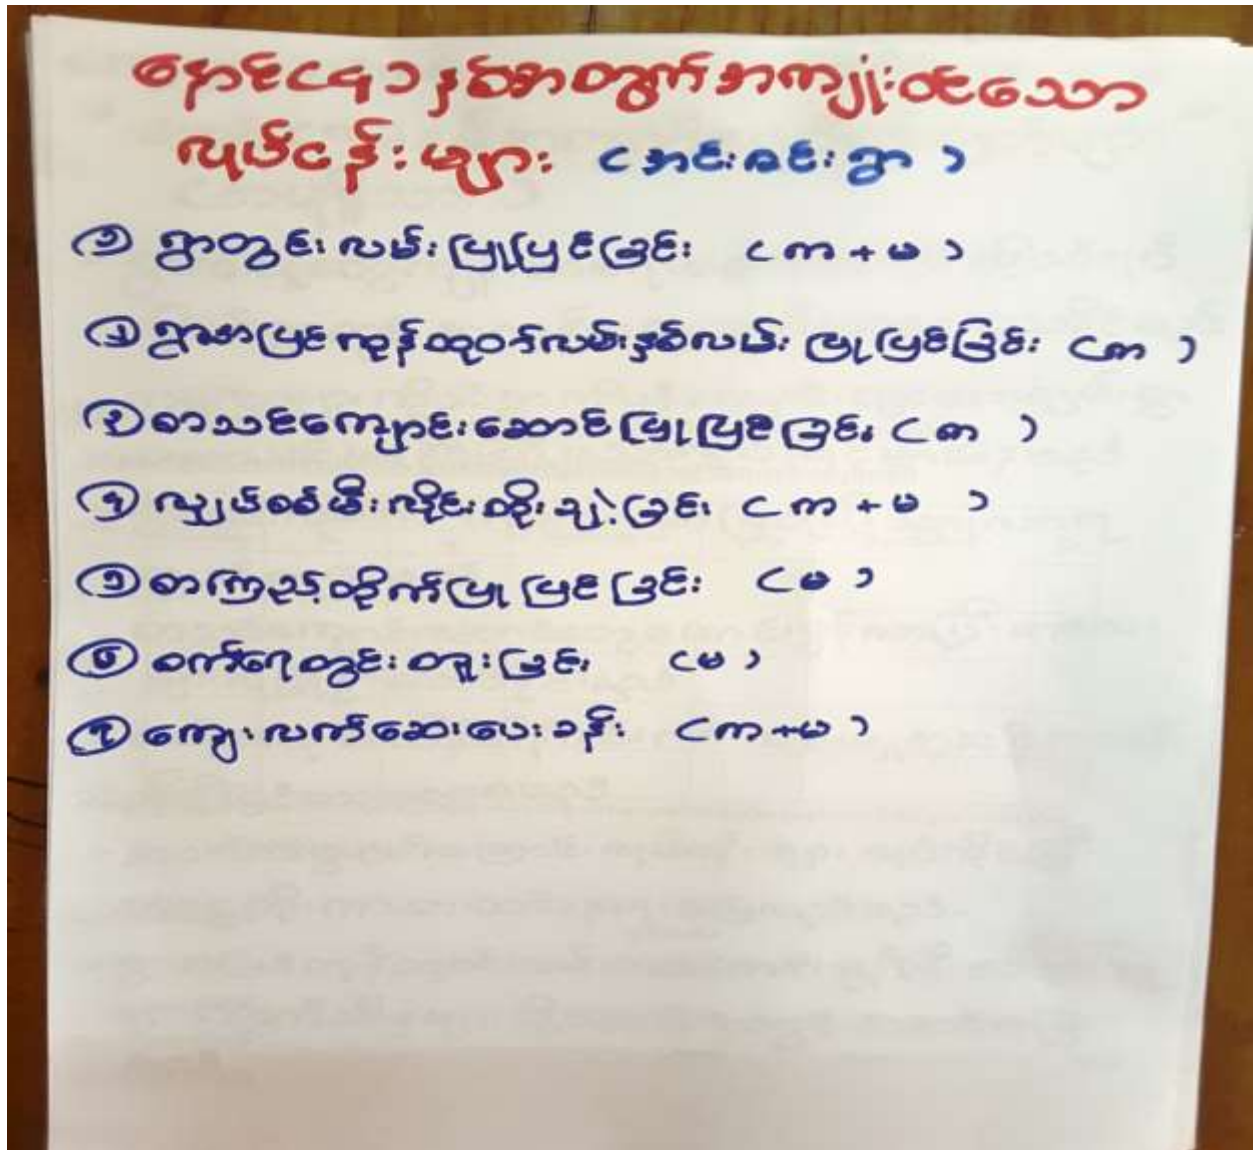 နောင်(၅)နှစ်အတွက်အကျုံးဝင်သော
လုပ်ငန်းများ (အင်းခင်းရွာ)
(၁) ရွာတွင်းလမ်းပြုပြင်ခြင်း (က + မ)
(၂) ရွာအပြင်ကုန်ထုတ်လမ်းနှစ်လမ်း ပြုပြင်ခြင်း (က)
(၃) စာသင်ကျောင်းဆောင်ပြုပြင်ခြင်း (က)
(၄) လျှပ်စစ်မီးလိုင်းတိုးချဲ့ခြင်း (က + မ)
(၅) စာကြည့်တိုက်ပြုပြင်ခြင်း (မ)
(၆) စက်ရေတွင်းတူးခြင်း (မ)
(၇) ကျေးလက်ဆေးပေးခန်း (က+မ)